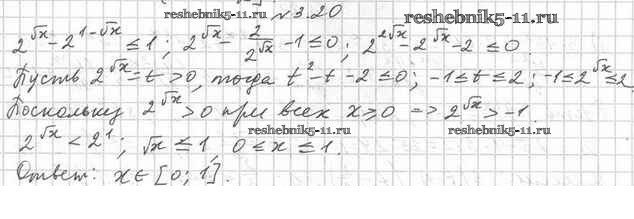 reshebnik5-11.ru №3.20 reshebnik5-11.ru
2^√x - 2^(1-√x) ≤ 1; 2^√x - 2/2^√x - 1 ≤ 0; 2^(2√x) - 2^√x - 2 ≤ 0.
Пусть 2^√x = t > 0, тогда t² - t - 2 ≤ 0; -1 ≤ t ≤ 2; -1 ≤ 2^√x ≤ 2.
Поскольку 2^√x > 0 при всех x ≥ 0 => 2^√x > -1.
reshebnik5-11.ru reshebnik5-11.ru
2^√x < 2^1; √x ≤ 1, 0 ≤ x ≤ 1.
Ответ: x ∈ [0; 1]. reshebnik5-11.ru